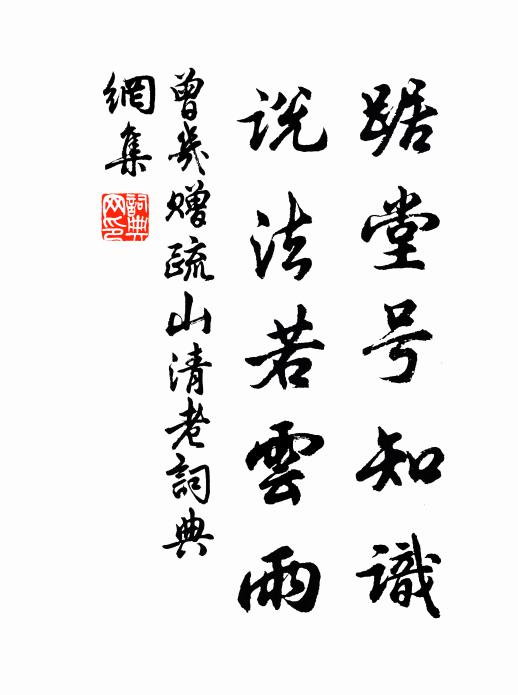 踞堂号知識
説法若雲雨
曾幾贈疏山清老詞典
網集
詞典
网印